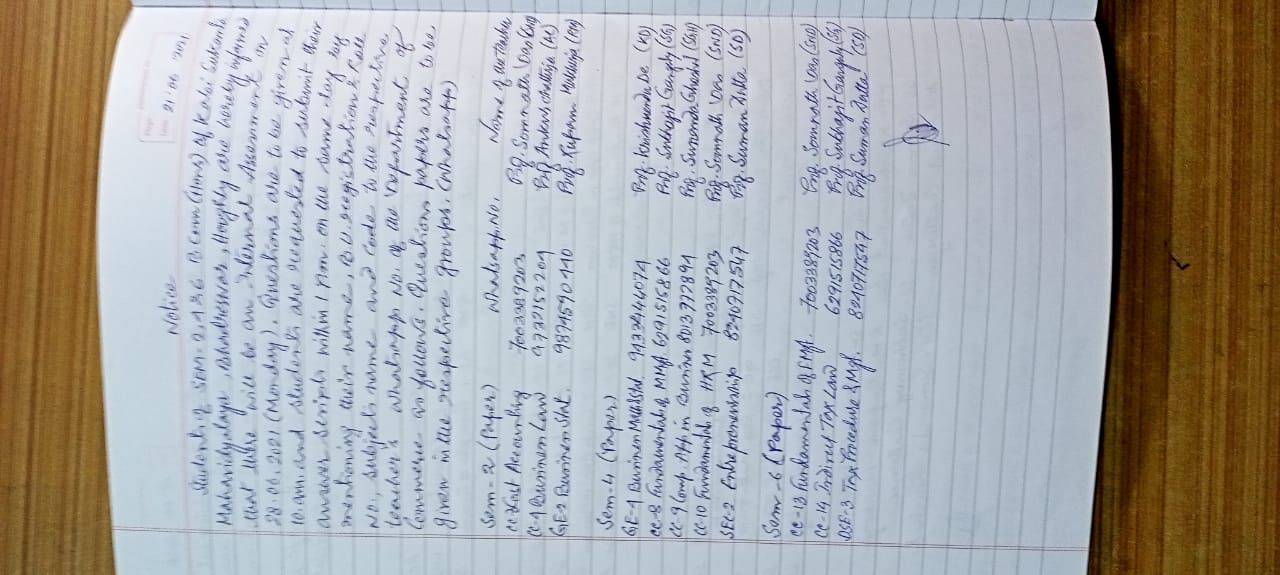 Date 21.06.2021
Notice
Students of SEM-2, 4 & 6 B.Com (Hons) of Kabi Sukanta
Mahavidyalaya, Bhadreswar, Hooghly are hereby informed
that there will be an Internal Assessment on
28.06.2021 (Monday). Questions are to be given at
10 a.m. and students are requested to submit their
answer scripts within 1 P.m. on the same day by
mentioning their name, B.U registration & Roll
No., subject name and code to the respective
teacher's whatsapp No. of the Department of
Commerce as follows. Questions papers are to be
given in the respective groups. (Whatsapp)
Sem-2 (Paper) Whatsapp No. Name of the Teacher
Cost Accounting 7003389203 Prof. Somnath Das (SND)
Business Law 9732152209 Prof. (AC)
GE-2 Business Stat. 9874590440 Prof. (RM)
Sem-4 (Paper)
GE-4 Business 9433444074 Prof. De (KD)
CC-8 Fundamental of 6291515866 Prof. Subhajit (SG)
CC-9 Comp. App in Business 8013772894 Prof. Sunanda Ghoshal (SGH)
CC-10 Fundamentals of HRM 7003389203 Prof. Somnath Das (SND)
SEC-2 Entrepreneurship 8240717547 Prof. Suman (SD)
Sem-6 (Paper)
CC-13 Fundamentals of 7003389203 Prof. Somnath Das (SND)
CC-14 Indirect Tax Law 6291515866 Prof. Subhajit (SG)
DSE-3 Tax Procedure & Mgt. 8240717547 Prof. Suman (SD)